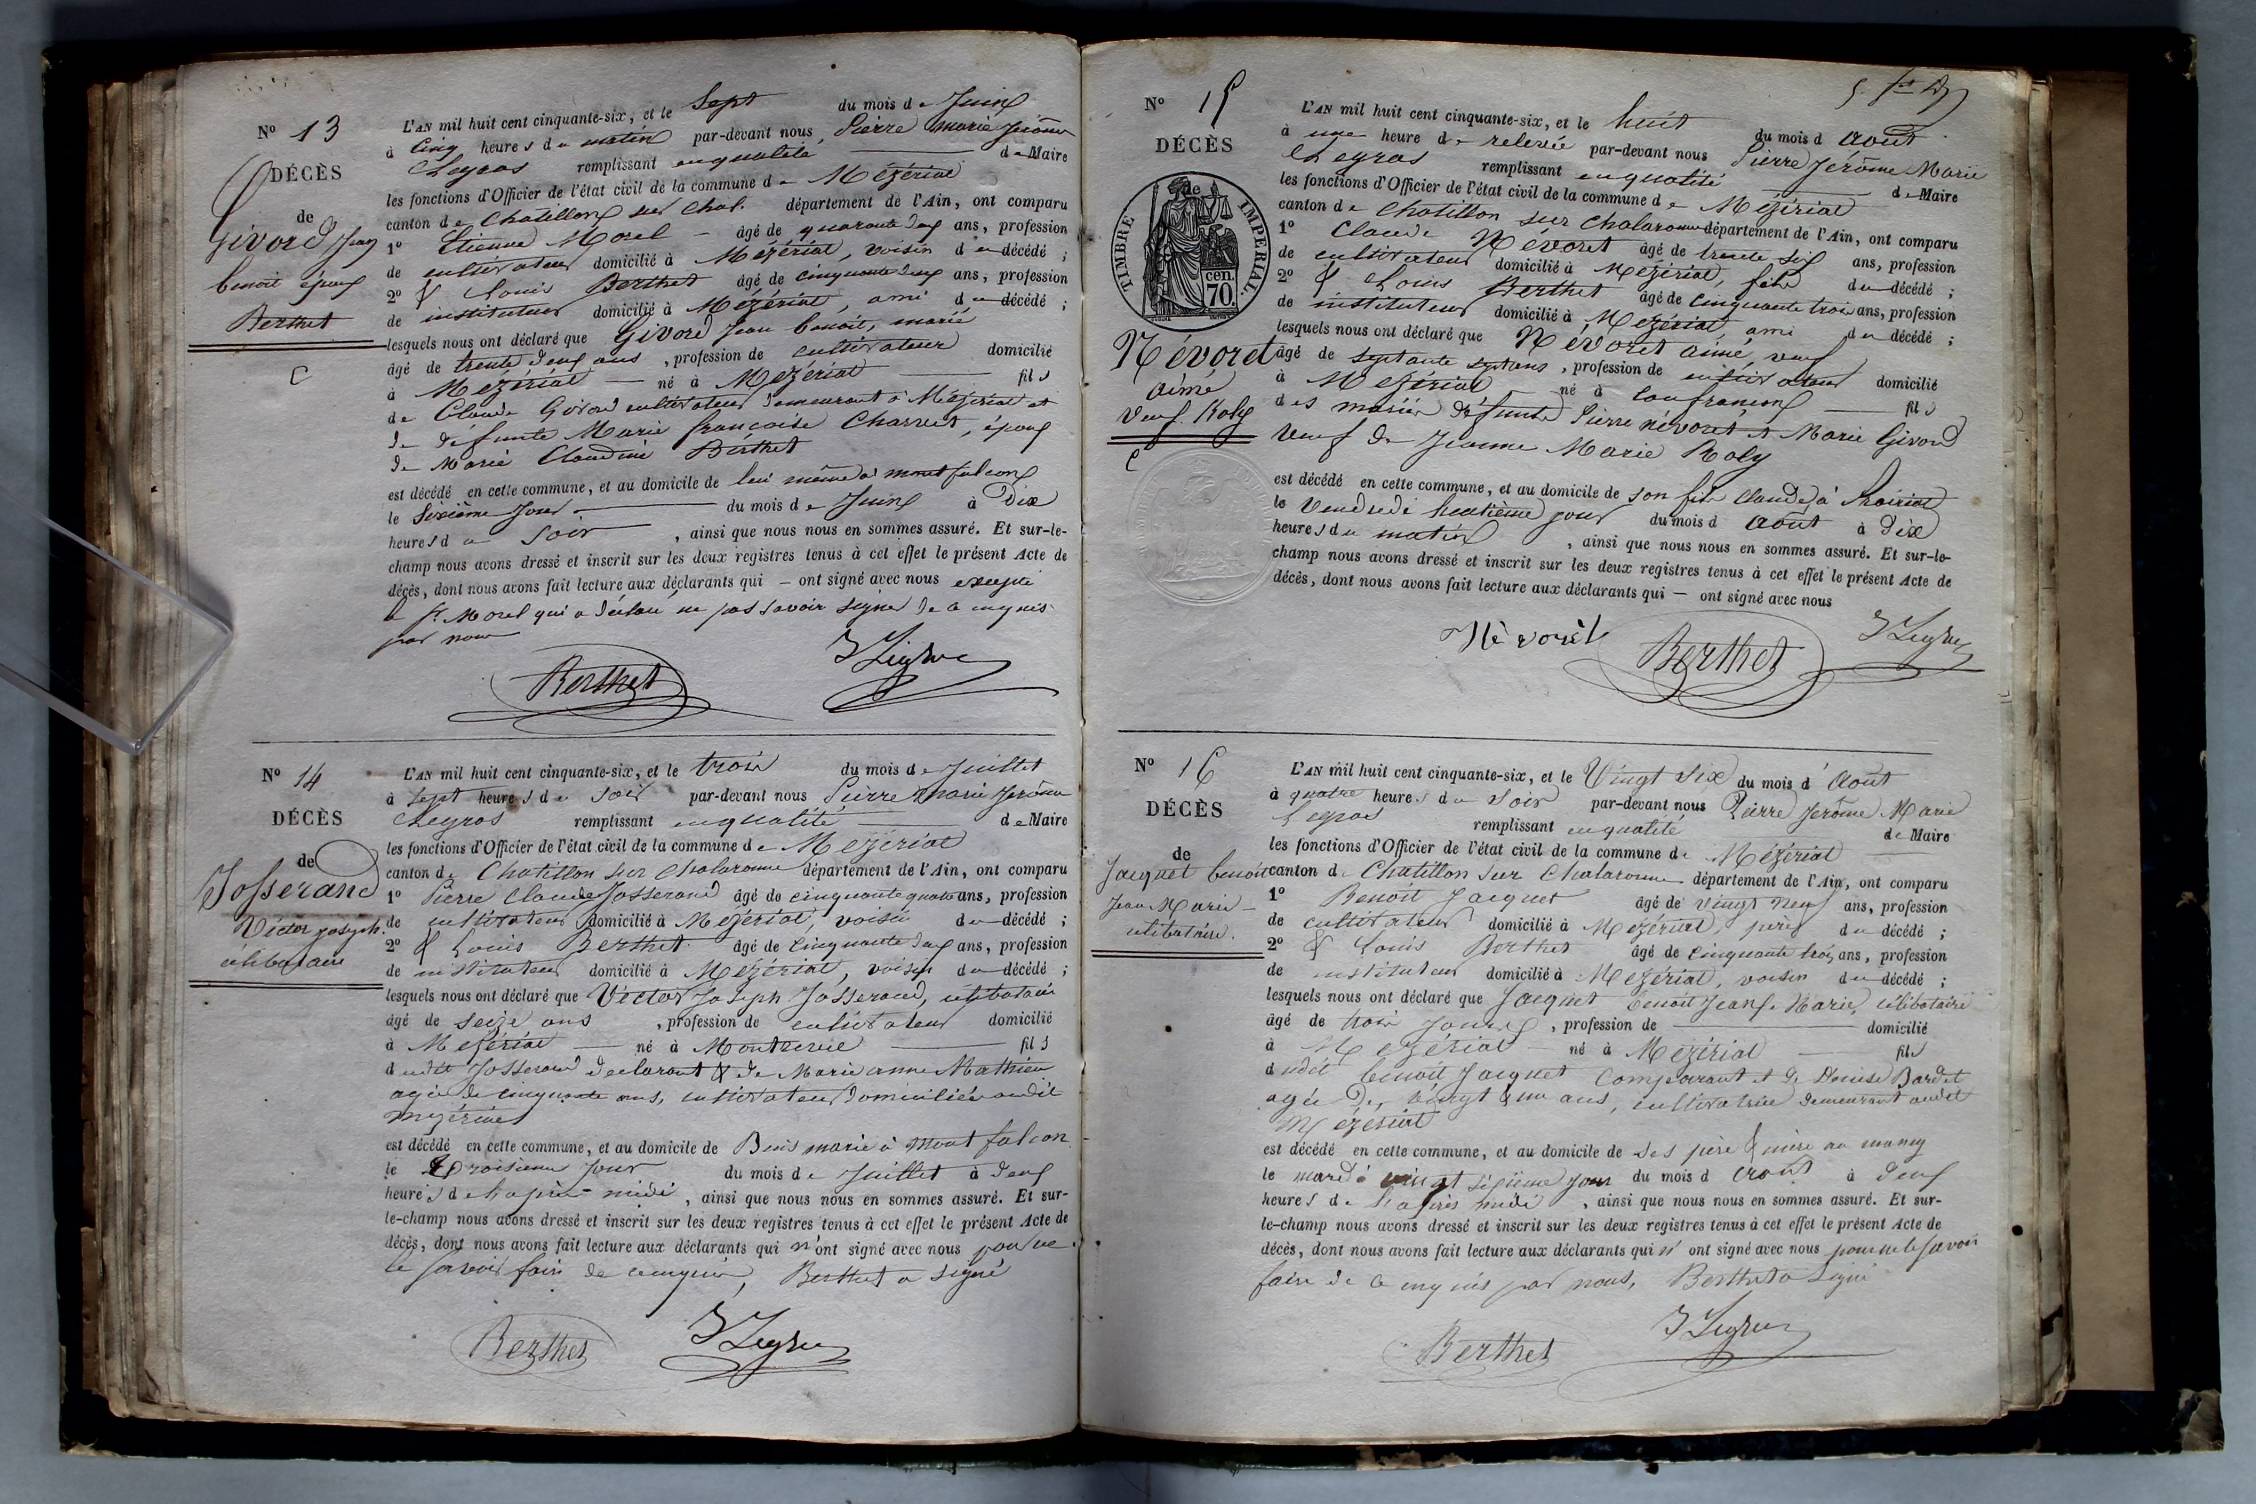 Nº 13
DÉCÈS
de
Givord Jean
benoit époux
Berthet
L'AN mil huit cent cinquante-six, et le Sept du mois de Juin
à Cinq heures du matin par-devant nous Pierre Marie Jérôme
Cheyras remplissant en qualité de Maire
les fonctions d'Officier de l'état civil de la commune de Mézériat
canton de Chatillon sur Chal. département de l'Ain, ont comparu
1º Etienne Morel âgé de quarante deux ans, profession
de cultivateur domicilié à Mézériat, voisin du décédé ;
2º & Louis Berthet âgé de cinquante deux ans, profession
de instituteur domicilié à Mézériat, ami du décédé ;
lesquels nous ont déclaré que Givord Jean benoit, marié
âgé de trente deux ans, profession de cultivateur domicilié
à Mézériat né à Mézériat fils
de Claude Givord cultivateur demeurant à Mézériat et
de défunte Marie françoise Charvet, époux
de Marie Claudine Berthet
est décédé en cette commune, et au domicile de lui même à montfalcon
le Sixième Jour du mois de Juin à Dix
heures du soir, ainsi que nous nous en sommes assuré. Et sur-le-
champ nous avons dressé et inscrit sur les deux registres tenus à cet effet le présent Acte de
décès, dont nous avons fait lecture aux déclarants qui — ont signé avec nous excepté
le Sr Morel qui a déclaré ne pas savoir signer de ce enquis
par nous
Berthet
Nº 14
DÉCÈS
de
Josserand
Victor joseph
célibataire
L'AN mil huit cent cinquante-six, et le trois du mois de Juillet
à Sept heures du soir par-devant nous Pierre Marie Jérôme
Cheyras remplissant en qualité de Maire
les fonctions d'Officier de l'état civil de la commune de Mézériat
canton de Chatillon sur Chalaronne département de l'Ain, ont comparu
1º Pierre Claude Josserand âgé de cinquante quatre ans, profession
de cultivateur domicilié à Mézériat, voisin du décédé ;
2º & Louis Berthet âgé de cinquante deux ans, profession
de instituteur domicilié à Mézériat, voisin du décédé ;
lesquels nous ont déclaré que Victor Joseph Josserand, célibataire
âgé de seize ans, profession de cultivateur domicilié
à Mézériat né à Montrevel fils
dudit Josserand déclarant & de Marie anne Mathieu
agée de cinquante ans, cultivateur domiciliés audit
Mézériat
est décédé en cette commune, et au domicile de marie à Montfalcon
le troisième Jour du mois de Juillet à deux
heures de l'après-midi, ainsi que nous nous en sommes assuré. Et sur-
le-champ nous avons dressé et inscrit sur les deux registres tenus à cet effet le présent Acte de
décès, dont nous avons fait lecture aux déclarants qui n'ont signé avec nous pour ne
le savoir faire de ce enquis, Berthet a signé
Berthet
Nº 15
DÉCÈS
de
TIMBRE IMPÉRIAL.
70. cen.
Névoret
aimé
veuf Roly
L'AN mil huit cent cinquante-six, et le huit du mois d'août
à une heure de relevée par-devant nous Pierre Jérôme Marie
Cheyras remplissant en qualité de Maire
les fonctions d'Officier de l'état civil de la commune de Mézériat
canton de Chatillon sur Chalaronne département de l'Ain, ont comparu
1º Claude Névoret âgé de trente six ans, profession
de cultivateur domicilié à Mézériat, fils du décédé ;
2º & Louis Berthet âgé de cinquante trois ans, profession
de instituteur domicilié à Mézériat, ami du décédé ;
lesquels nous ont déclaré que Névoret aimé, veuf
âgé de septante sept ans, profession de cultivateur domicilié
à Mézériat né à Confrançon fils
des mariés défunts Pierre névoret et Marie Givord
veuf de Jeanne Marie Roly
est décédé en cette commune, et au domicile de son fils Claude, à
le Vendredi huitième jour du mois d'août à Dix
heures du matin, ainsi que nous nous en sommes assuré. Et sur-le-
champ nous avons dressé et inscrit sur les deux registres tenus à cet effet le présent Acte de
décès, dont nous avons fait lecture aux déclarants qui — ont signé avec nous
Névoret Berthet
Nº 16
DÉCÈS
de
Jacquet benoit
Jean Marie
célibataire.
L'AN mil huit cent cinquante-six, et le Vingt Six du mois d'août
à quatre heures du soir par-devant nous Pierre Jérôme Marie
Cheyras remplissant en qualité de Maire
les fonctions d'Officier de l'état civil de la commune de Mézériat
canton de Chatillon sur Chalaronne département de l'Ain, ont comparu
1º Benoit Jacquet âgé de vingt neuf ans, profession
de cultivateur domicilié à Mézériat, père du décédé ;
2º & Louis Berthet âgé de cinquante trois ans, profession
de instituteur domicilié à Mézériat, voisin du décédé ;
lesquels nous ont déclaré que Jacquet benoit Jean Marie, célibataire
âgé de trois Jours, profession de domicilié
à Mézériat né à Mézériat fils
dudit benoit Jacquet comparant et de Louise Bardet
agée de vingt & un ans, cultivatrice demeurant audit
Mézériat
est décédé en cette commune, et au domicile de ses père & mère au
le mardi vingt sixième jour du mois d'août à deux
heures de l'après midi, ainsi que nous nous en sommes assuré. Et sur-
le-champ nous avons dressé et inscrit sur les deux registres tenus à cet effet le présent Acte de
décès, dont nous avons fait lecture aux déclarants qui n'ont signé avec nous pour ne le savoir
faire de ce enquis par nous, Berthet a signé
Berthet